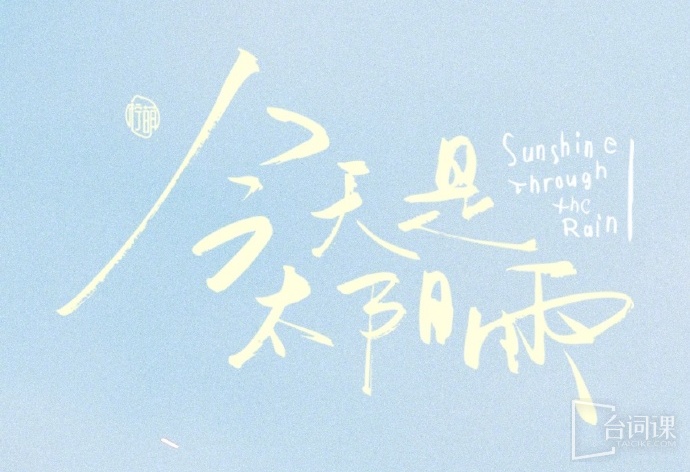 今天是
太阳雨
Sunshine
through
the
Rain
台词课
TAICIKE.COM